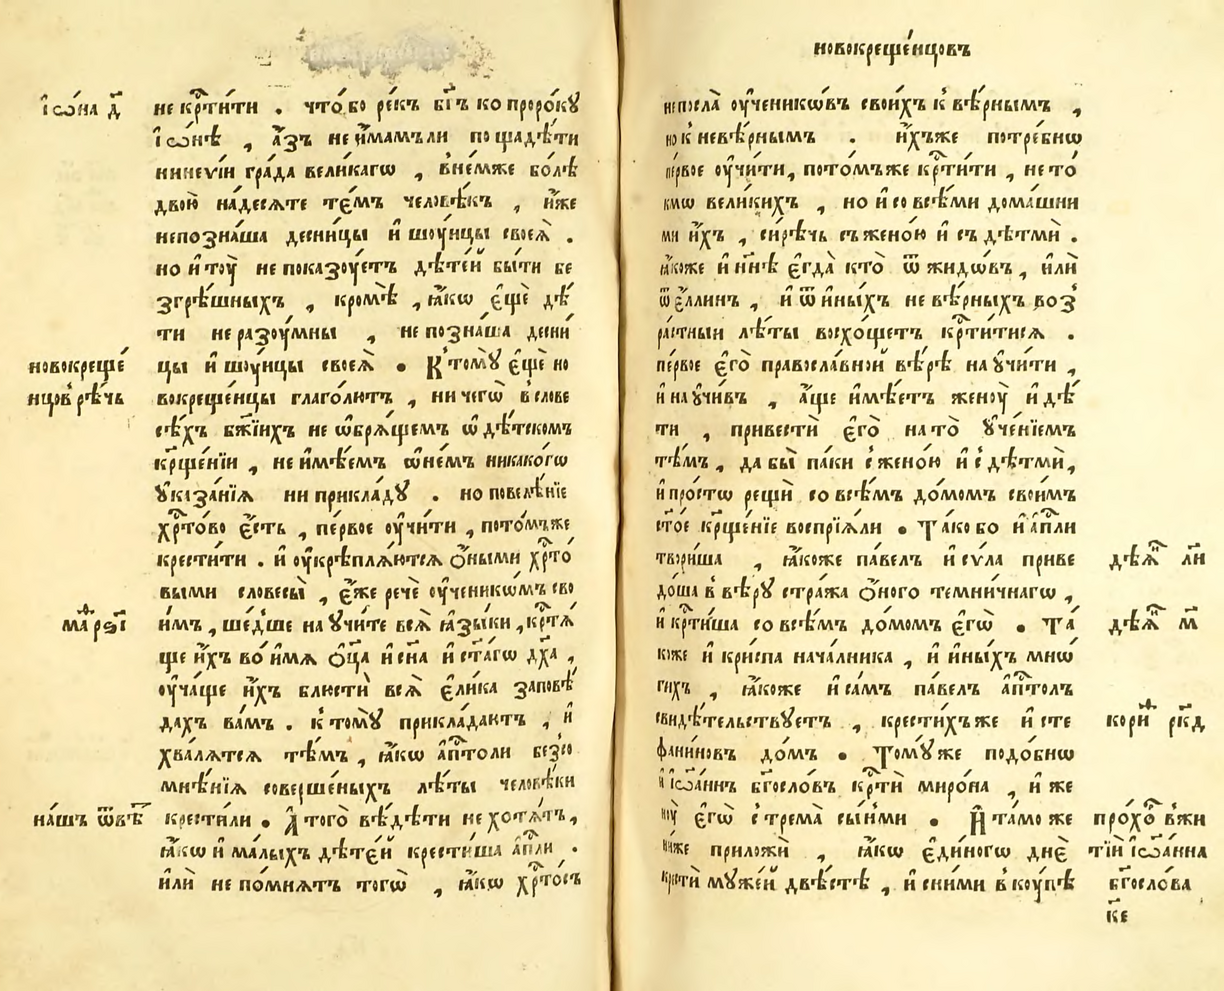 новокреще́нцовъ
і҆ѡ́на д҃
не кр҃ти́ти . что́ бо ре́къ бг҃ъ ко проро́кꙋ
і҆ѡ́нѣ , а҆́зъ не и҆́мамъли пощадѣ́ти
нинеѵі́и гра́да вели́кагѡ , в не́мже бо́лѣ
двою̀ на́десѧте те́мъ человѣ́къ , и҆́же
непозна́ша десни́цы и҆ шоу́ицы своеѧ̀ .
но и҆ тоу̀ не показоу́етъ дѣте́й бы́ти бе
згрѣ́шныхъ , кромѣ̀ , ꙗ҆́кѡ є҆щѐ дѣ́
ти не разоу́мны , не позна́ша десни́
цы и҆ шоу́ицы своеѧ̀ . К̾ томꙋ̀ є҆щѐ но
вокреще́нцы глаго́лютъ , ничегѡ̀ в̾ слове
сѣ́хъ бж҃іихъ не ѡ҆брѧ́щемъ ѡ҆ дѣ́тском
кр҃ще́нїи , не и҆мѣ́емъ ѡ҆ не́мъ никако́гѡ
ᲂу҆каза́нїѧ ни прикла́дꙋ . но повелѣ́нїе
хр҃то́во є҆́сть , пе́рвое оу҆чи́ти , пото́мъже
крести́ти . и҆ оу҆крѣплѧ́ютсѧ ѻ҆́ными хр҃то́
выми словесы̀ , є҆́же речѐ оу҆ченикѡ́мъ сво
и҆́мъ , ше́дше наꙋчи́те всѧ̀ ꙗ҆зы́ки , кр҃тѧ́
ще и҆́хъ во и҆́мѧ ѻ҆ц҃а̀ и҆ сн҃а и҆ ст҃а́гѡ дх҃а ,
оу҆ча́ще и҆́хъ блюстѝ всѧ̀ є҆ли́ка заповѣ́
дахъ ва́мъ . к̾ томꙋ̀ прикла́даютъ , и҆
хва́лѧтсѧ тѣ́мъ , ꙗ҆́кѡ а҆п҃толи безсо
мнѣ́нїѧ соверше́ныхъ лѣ́ты человѣ́ки
крести́ли . А҆ того̀ вѣ́дѣти не хотѧ́тъ ,
ꙗ҆́кѡ и҆ ма́лыхъ дѣте́й крести́ша а҆п҃ли .
и҆лѝ не по́мнѧтъ тогѡ̀ , ꙗ҆́кѡ хр҃то́съ
новокреще́
нцов̾ рѣ́чь
маⷴ҇ р҃ѕі
на́шъ ѿвѣ́
непосла̀ оу҆ченикѡ́въ свои́хъ к̾ вѣ́рнымъ ,
но к̾ невѣ́рнымъ . и҆́хъже потре́бнѡ
пе́рвое оу҆чи́ти , пото́мъже кр҃ти́ти , не то́
кмѡ вели́кихъ , но и҆ со всѣ́ми дома́шни
ми и҆́хъ , си́рѣчь съ жено́ю и҆ съ дѣтмѝ .
ꙗ҆́коже и҆ нн҃ѣ є҆гда̀ кто̀ ѿ жидѡ́въ , и҆лѝ
ѿ є҆́ллинъ , и҆ ѿ и҆ны́хъ не вѣ́рныхъ воз̾
растныи лѣ́ты восхо́щетъ кр҃ти́тисѧ .
пе́рвое є҆го̀ правосла́вной вѣ́рѣ наꙋчи́ти ,
и҆ наꙋчи́въ , а҆́ще и҆мѣ́етъ женоу̀ и҆ дѣ́
ти , привестѝ є҆го̀ на то̀ ꙋче́нїемъ
тѣ́мъ , да бы̀ па́ки с̾ жено́ю и҆ с̾ дѣтмѝ ,
и҆ про́стѡ рещѝ со всѣ́мъ до́момъ свои́мъ
ст҃ое кр҃ще́нїе воспрїѧ́ли . Та́ко бо и҆ а҆п҃ли
твори́ша , ꙗ҆́коже па́велъ и҆ си́ла приве
до́ша в̾ вѣ́рꙋ стра́жа ѻ҆́ного темни́чнагѡ ,
и҆ кр҃ти́ша со всѣ́мъ до́момъ є҆гѡ̀ . Та́
коже и҆ кри́спа нача́лника , и҆ и҆ны́хъ мнѡ́
гихъ , ꙗ҆́коже и҆ са́мъ па́велъ а҆п҃толъ
свидѣ́тельствꙋетъ , крести́хъже и҆ сте
фани́новъ до́мъ . Томꙋ́же подо́бнѡ
и҆ і҆ѡа́ннъ бг҃осло́въ кр҃тѝ миро́на , и҆ же
ноу̀ є҆гѡ̀ с̾ трема̀ сы́нми . И҆ та́мо же
ни́же приложѝ , ꙗ҆́кѡ є҆ди́ногѡ днѐ
кр҃тѝ мꙋже́й двѣ́стѣ , и҆ с ни́ми в̾ коу́пѣ
дѣѧ҃ л҃и
дѣѧ҃ м҃
кори́ⷴ рк҃д
прохо̑ в̾жи
тїи́ і҆ѡа́нна
бг҃осло́ва
к҃е